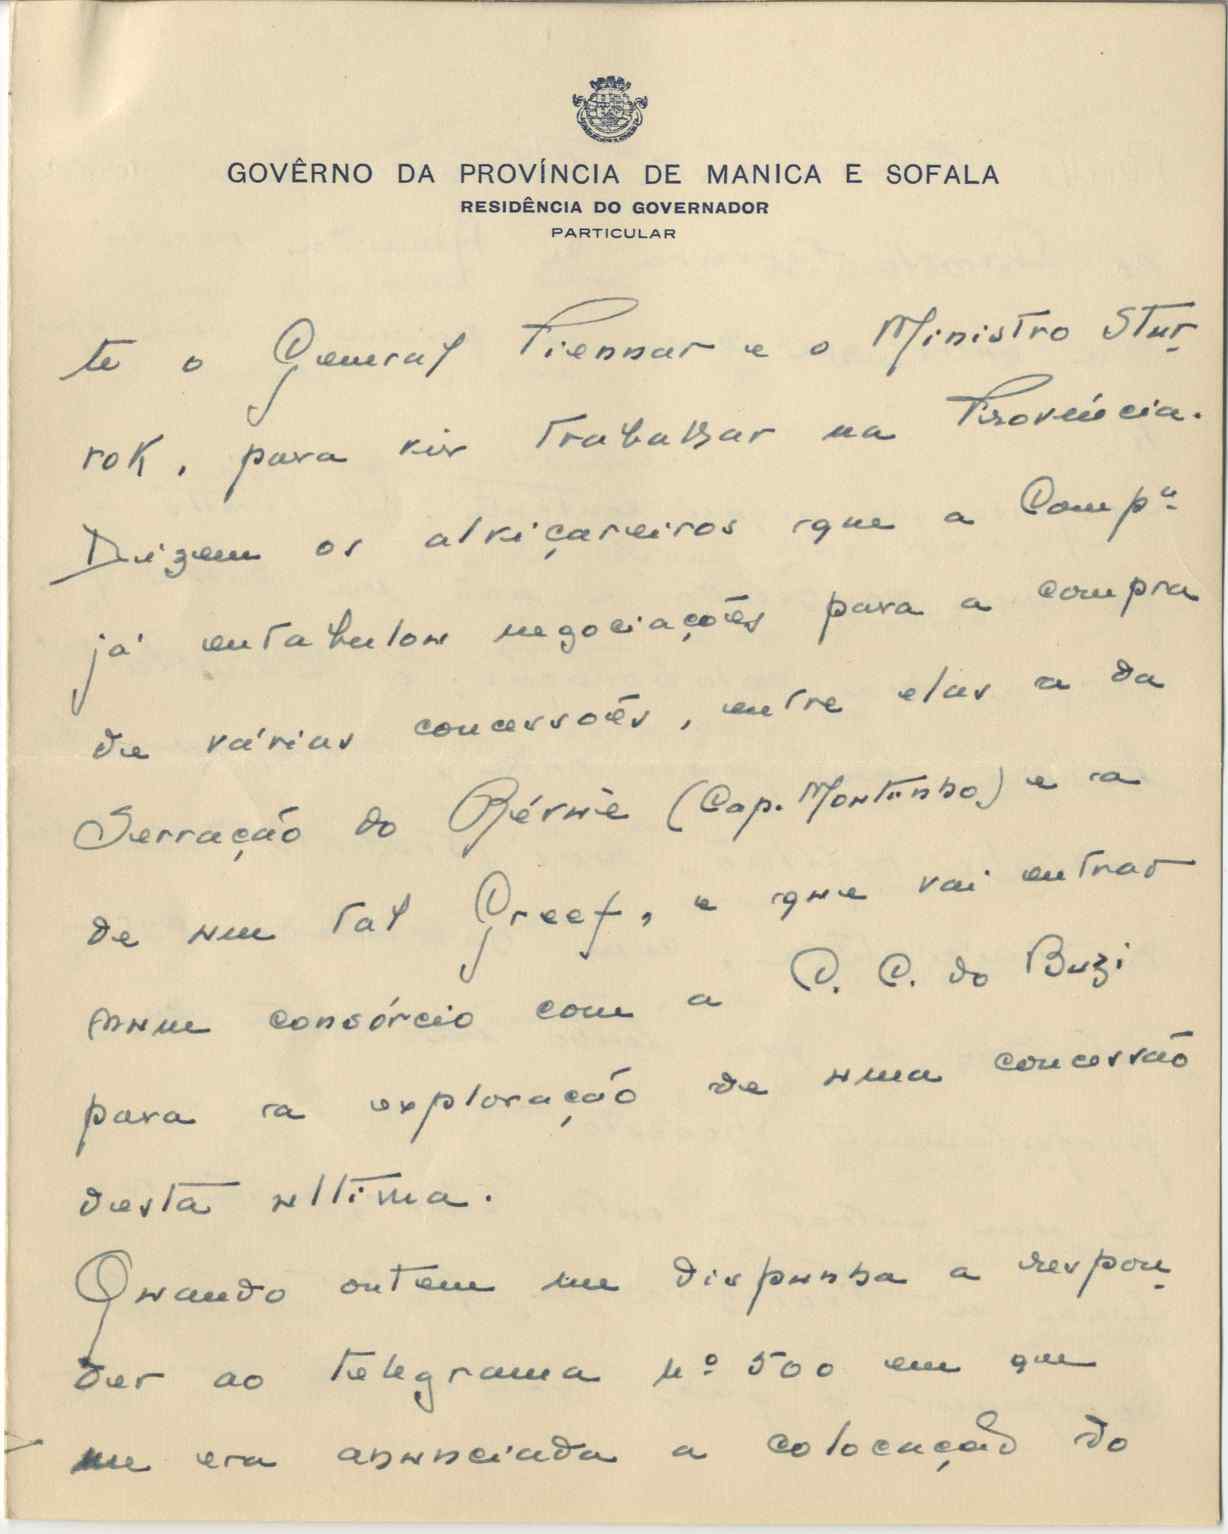 GOVÊRNO DA PROVÍNCIA DE MANICA E SOFALA
RESIDÊNCIA DO GOVERNADOR
PARTICULAR
te o General Pienaar e o Ministro Stur-
rok, para vir trabalhar na Província.
Dizem os alviçareiros que a Compª
já entabulou negociações para a compra
de várias concessões, entre elas a da
Serração do Bérue (Cap. Moutinho) e a
de um tal Greef, e que vai entrar
num consórcio com a C. C. do Buzi
para a exploração de uma concessão
desta ultima.
Quando ontem me dispunha a respon-
der ao telegrama nº 500 em que
me era anunciada a colocação do